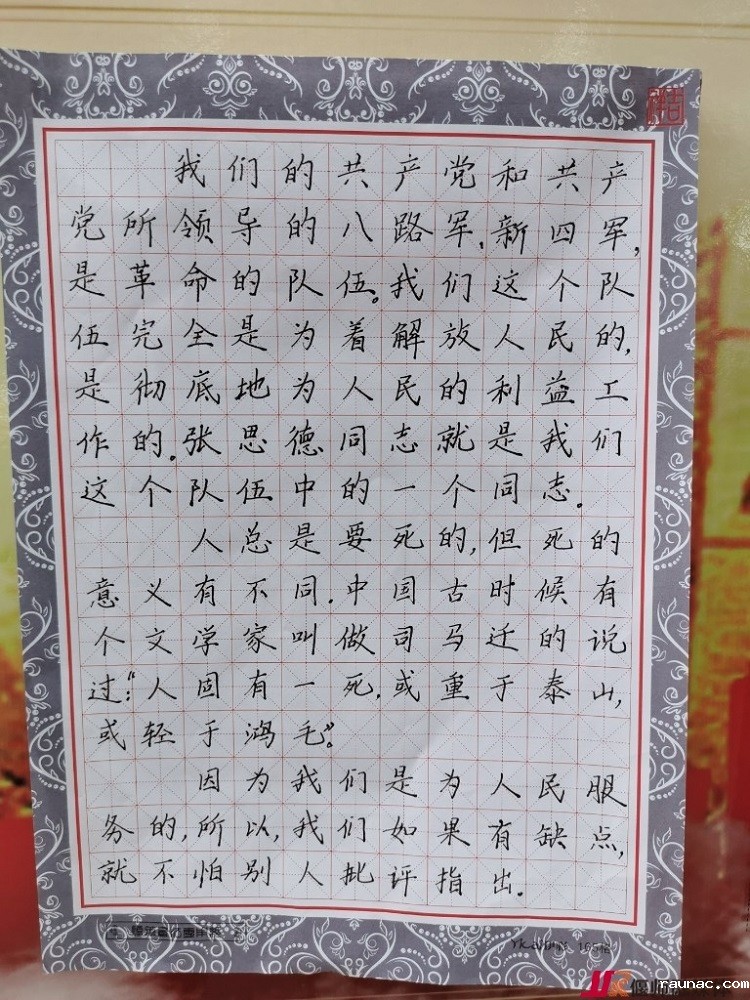 我们的共产党和共产
党所领导的八路军、新四军，
是革命的队伍。我们这个队
伍完全是为着解放人民的，
是彻底地为人民的利益工
作的。张思德同志就是我们
这个队伍中的一个同志。
人总是要死的，但死的
意义有不同。中国古时候有
个文学家叫做司马迁的说
过：“人固有一死，或重于泰山，
或轻于鸿毛”。
因为我们是为人民服
务的，所以，我们如果有缺点，
就不怕别人批评指出。
raunac.com